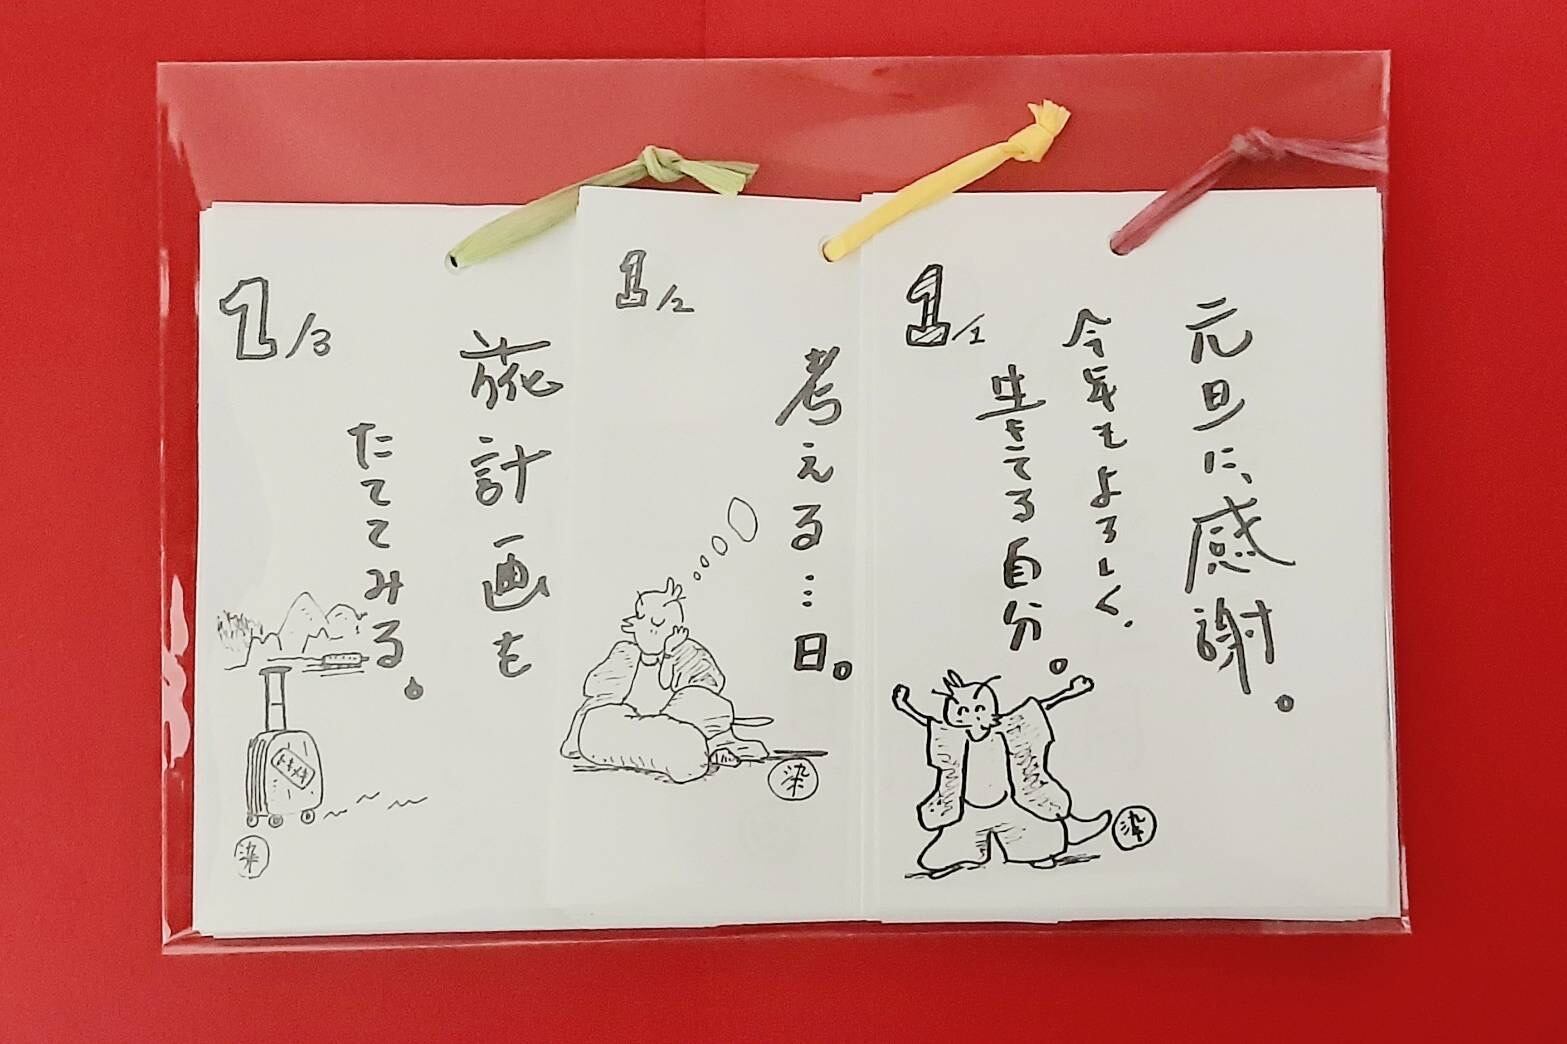 1/1
元旦に、感謝。
今年もよろしく、
生きてる自分。
染
1/2
考える…日。
染
1/3
旅計画を
たててみる。
トキメキ
染